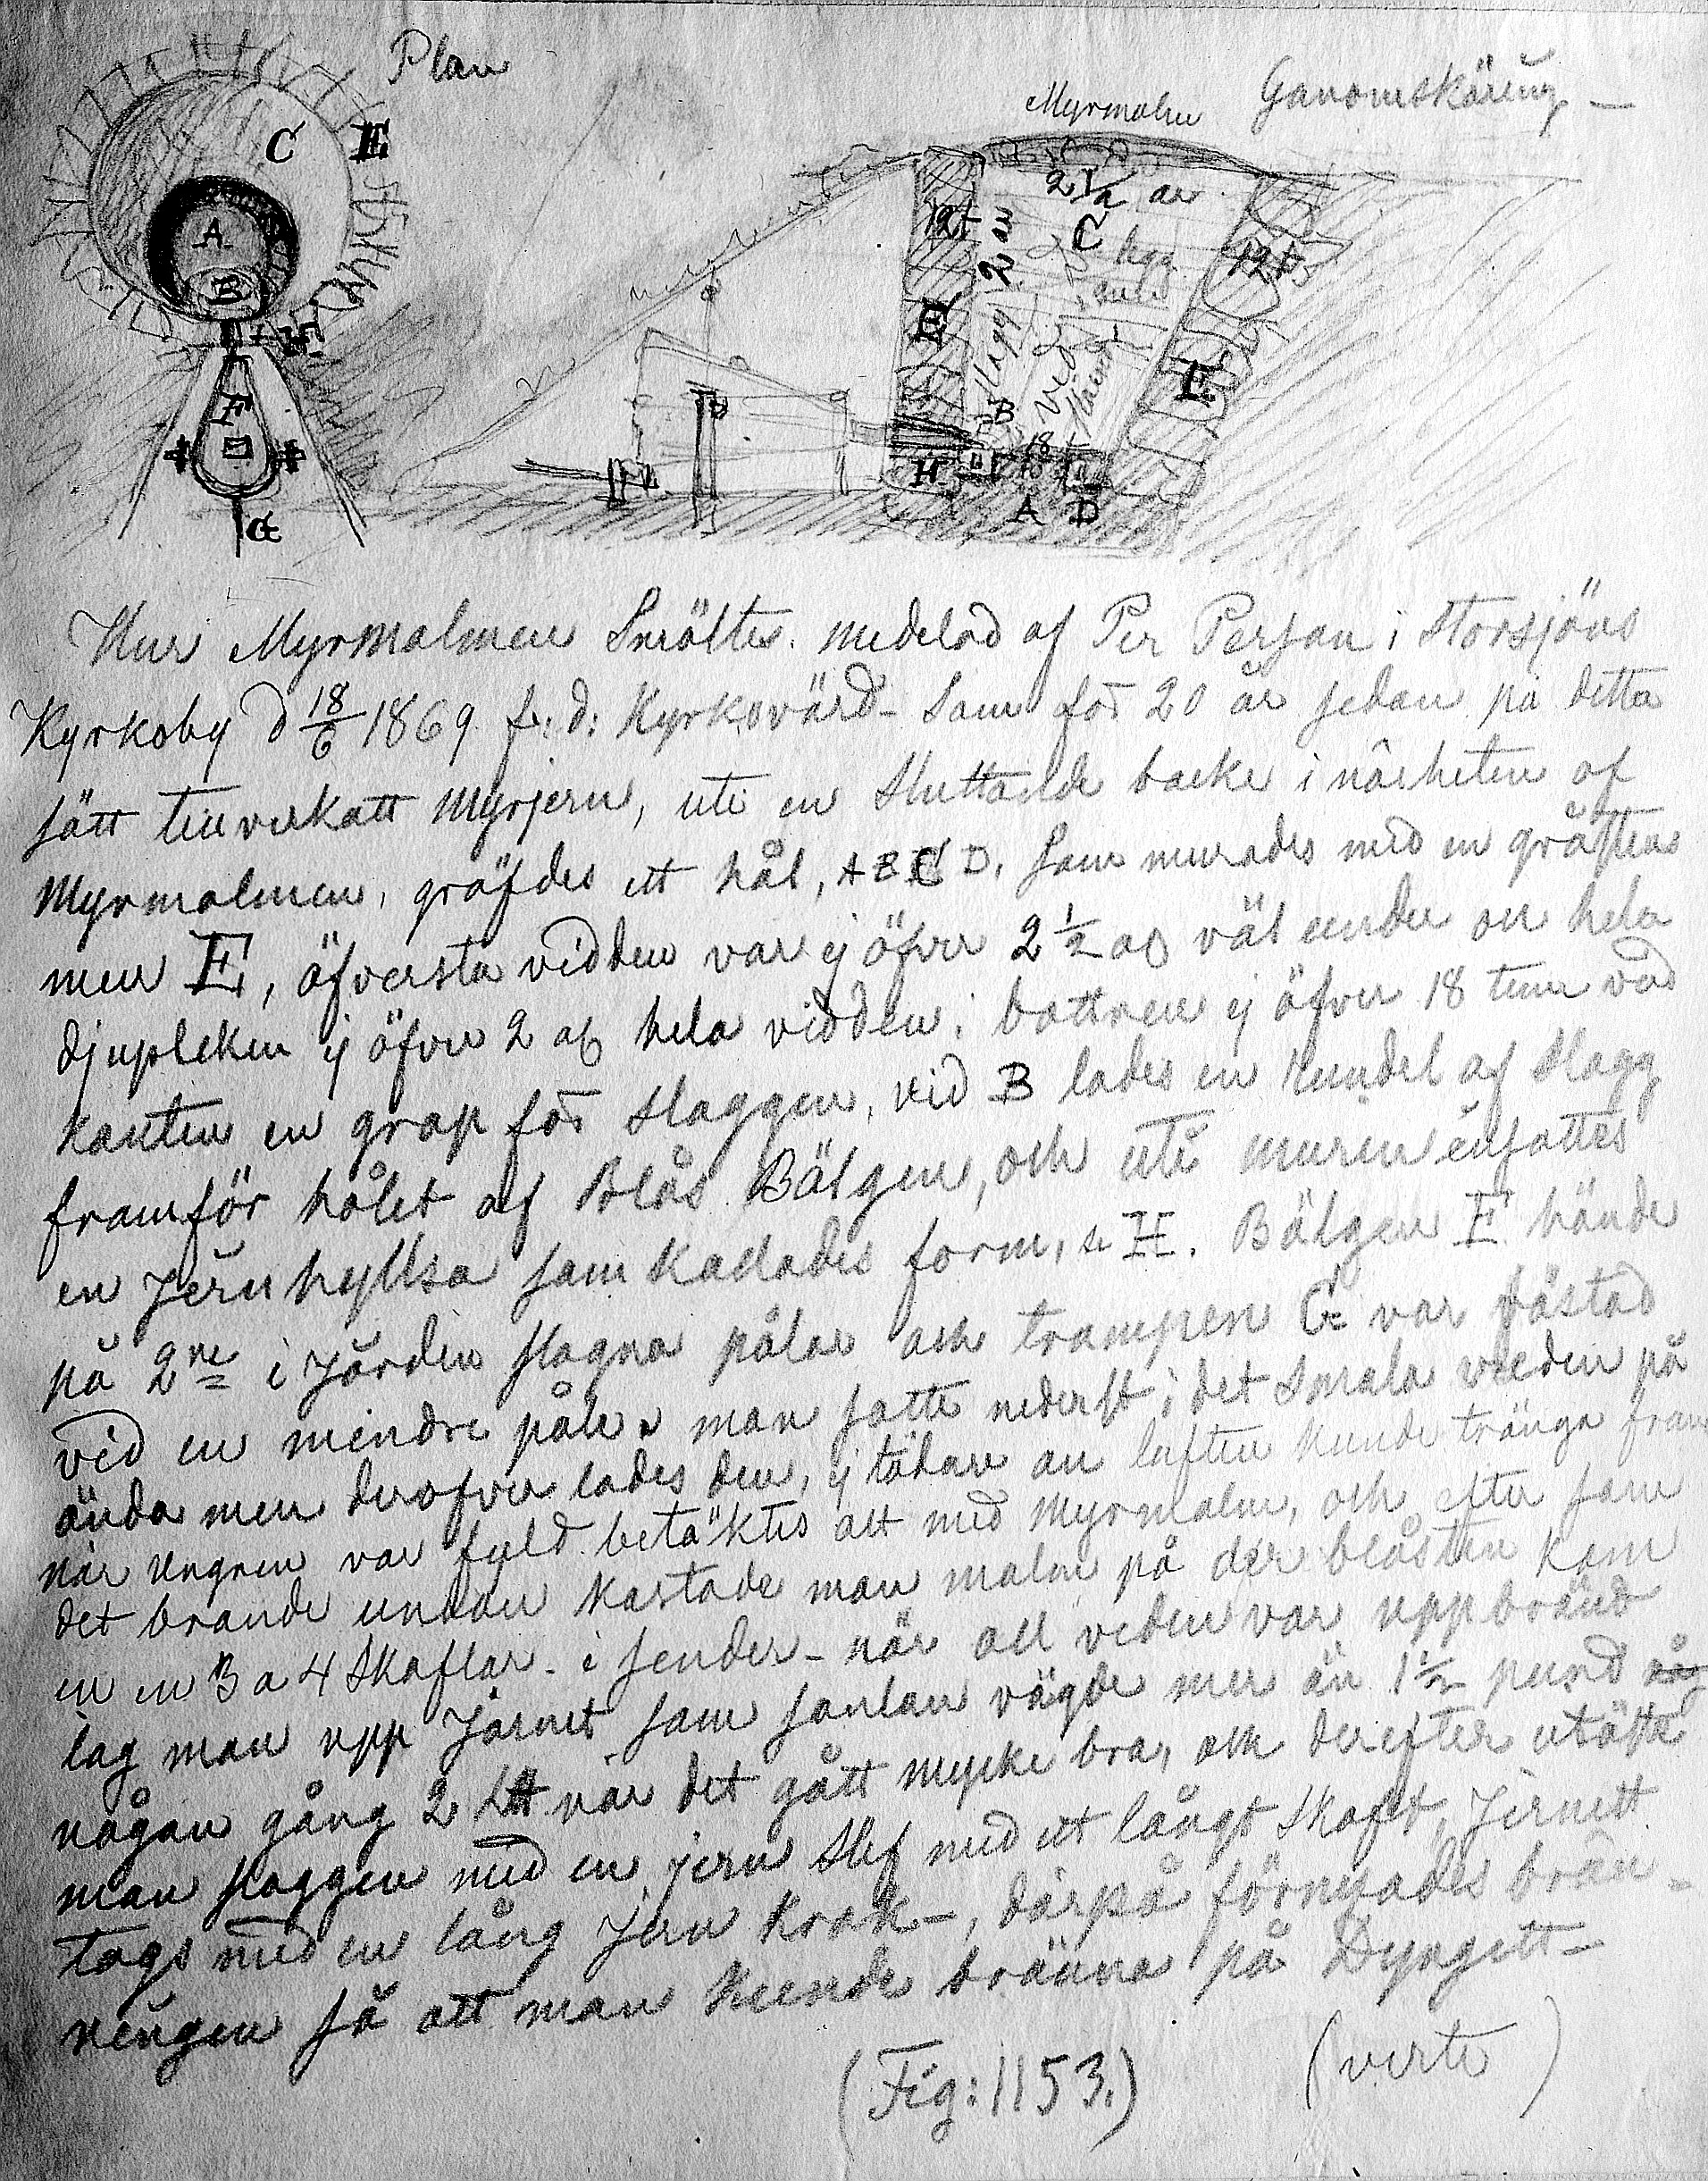 Plan
Genomskäring
Myrmalm
C E
A
B
H
F
G
2 1/2 aln
C
12 t
12 t
2 aln
E
E
slagg
ved
B
18 t
H
A D
Hur Myrmalmen Smältes. medelad af Per Persson i Storsjöns
Kyrkoby d 18/6 1869. f: d: Kyrkovärd – Som för 20 år sedan på detta
sätt tillverkatt Myrjern, uti en Sluttande backe i närheten af
Myrmalmen, gräfdes ett hål, A B C D. Som murades med en gråstens
mur E, öfversta vidden var ej öfver 2 1/2 aln väl under en hela
djupleken ej öfver 2 aln hela vidden i bottnen ej öfver 18 tum vid
kanten en grop för slaggen, vid B lades en rundel af slagg
framför hålet af Blås Bälgen, och uti muren insattes
en Jern hyllsa som kallades form, se H. Bälgen F hände
på 2ne i Jorden slagna pålar och trampen G var fästad
vid en mindre påle. man satte nederst i det Smala veden på
ända men derofver lades den, ej tätare än luften kunde tränga fram
när Ungnen var fyld betäktes alt med Myrmalm, och efter som
det brande undan kastade man malm på der blåsten kom
en 3 a 4 Skoflar i sender – när all veden var uppbränd
tog man upp Järnet som sällan vägde mer än 1 1/2 pund
någon gång 2 L℔ när det gått mycke bra, och derefter utöste
man slaggen med en jern slef med ett långt Skaft, Jernett
togs med en lång Jern krok –, därpå förnyades brän-
ningen så att man kunde bränna på Dyngett –
(Fig: 1153.)
(verte)